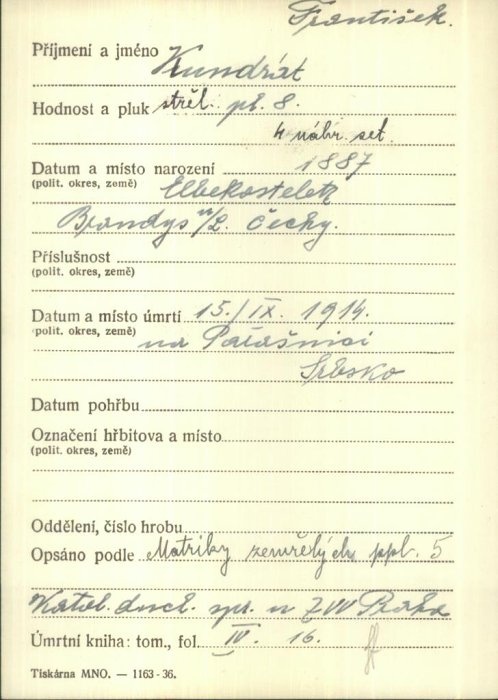 František.
Příjmení a jméno Kundrát
Hodnost a pluk střel. pl. 8.
4 náhr. set.
Datum a místo narození 1887
(polit. okres, země) Elbekosteletz
Brandys n/L. Čechy.
Příslušnost
(polit. okres, země)
Datum a místo úmrtí 15./IX. 1914.
(polit. okres, země) na Parašnici
Srbsko
Datum pohřbu
Označení hřbitova a místo
(polit. okres, země)
Oddělení, číslo hrobu
Opsáno podle Matriky zemřelých ppl. 5
Katol. duch. spr. u ZVV Praha
Úmrtní kniha: tom., fol. IV. 16.
Tiskárna MNO. — 1163-36.